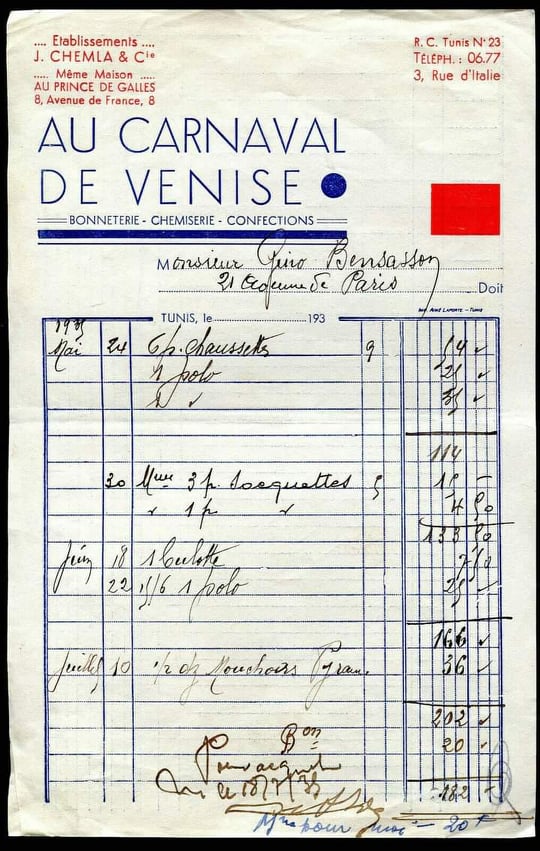 .... Etablissements ....
J. CHEMLA & Cie
..... Même Maison .....
AU PRINCE DE GALLES
8, Avenue de France, 8
R. C. Tunis No 23
TÉLÉPH. : 06.77
3, Rue d'Italie
AU CARNAVAL
DE VENISE
BONNETERIE - CHEMISERIE - CONFECTIONS
Monsieur Gino Bensasson
21 Avenue de Paris Doit
TUNIS, le 193
1935
Mai 24 6 p. chaussettes 9 54
1 polo 25
1 " 35
114
30 Mme 3 p. Socquettes 5 15 -
" 1 p " 4 50
133 50
Juin 18 1 Culotte 7 50
22 1 polo 25
166
Juillet 10 1/2 dz Mouchoirs Pyram. 36
202
Bon 20
Pour acquit
182
pour 20